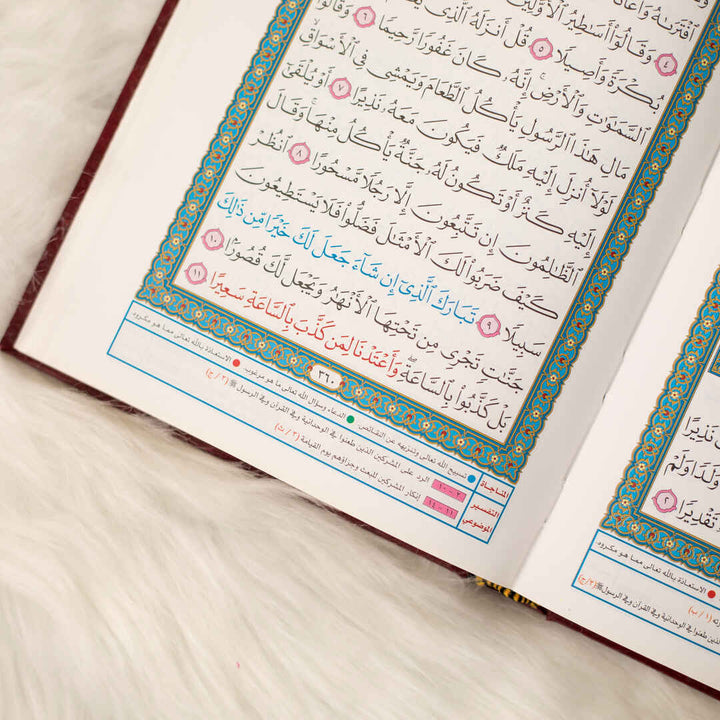 ٱفْتَرَىٰهُ وَأَعَانَهُ
٤ وَقَالُوٓا۟ أَسَٰطِيرُ ٱلْأَوَّلِينَ
بُكْرَةً وَأَصِيلًا ٥ قُلْ أَنزَلَهُ ٱلَّذِى
ٱلسَّمَٰوَٰتِ وَٱلْأَرْضِ ۚ إِنَّهُۥ كَانَ غَفُورًا رَّحِيمًا ٦ وَقَالُوا۟
مَالِ هَٰذَا ٱلرَّسُولِ يَأْكُلُ ٱلطَّعَامَ وَيَمْشِى فِى ٱلْأَسْوَاقِ ۙ
لَوْلَآ أُنزِلَ إِلَيْهِ مَلَكٌ فَيَكُونَ مَعَهُۥ نَذِيرًا ٧ أَوْ يُلْقَىٰٓ
إِلَيْهِ كَنزٌ أَوْ تَكُونُ لَهُۥ جَنَّةٌ يَأْكُلُ مِنْهَا ۚ وَقَالَ
ٱلظَّٰلِمُونَ إِن تَتَّبِعُونَ إِلَّا رَجُلًا مَّسْحُورًا ٨ ٱنظُرْ
كَيْفَ ضَرَبُوا۟ لَكَ ٱلْأَمْثَٰلَ فَضَلُّوا۟ فَلَا يَسْتَطِيعُونَ
سَبِيلًا ٩ تَبَارَكَ ٱلَّذِىٓ إِن شَآءَ جَعَلَ لَكَ خَيْرًا مِّن ذَٰلِكَ
جَنَّٰتٍ تَجْرِى مِن تَحْتِهَا ٱلْأَنْهَٰرُ وَيَجْعَل لَّكَ قُصُورًۢا ١٠
بَلْ كَذَّبُوا۟ بِٱلسَّاعَةِ ۖ وَأَعْتَدْنَا لِمَن كَذَّبَ بِٱلسَّاعَةِ سَعِيرًا ١١
٣٦٠
المناجاة
تسبيح الله تعالى وتنزيهه عن النقائص. الدعاء وسؤال الله تعالى ما هو مرغوب. الاستعاذة بالله تعالى مما هو مكروه
التفسير الموضوعي
٣ - ١٠ الرد على المشركين الذين طعنوا في الوحدانية وفي القرآن وفي الرسول ﷺ (٢ / ج)
١١ - ١٤ إنكار المشركين للبعث وجزاؤهم يوم القيامة (٣ / ث)
نَذِيرًا
وَلَدًا وَلَمْ
تَقْدِيرًا ٢
الاستعاذة بالله تعالى مما هو مكروه
(١ / ب)
طعنوا في الوحدانية وفي القرآن وفي الرسول ﷺ (٢/ج)